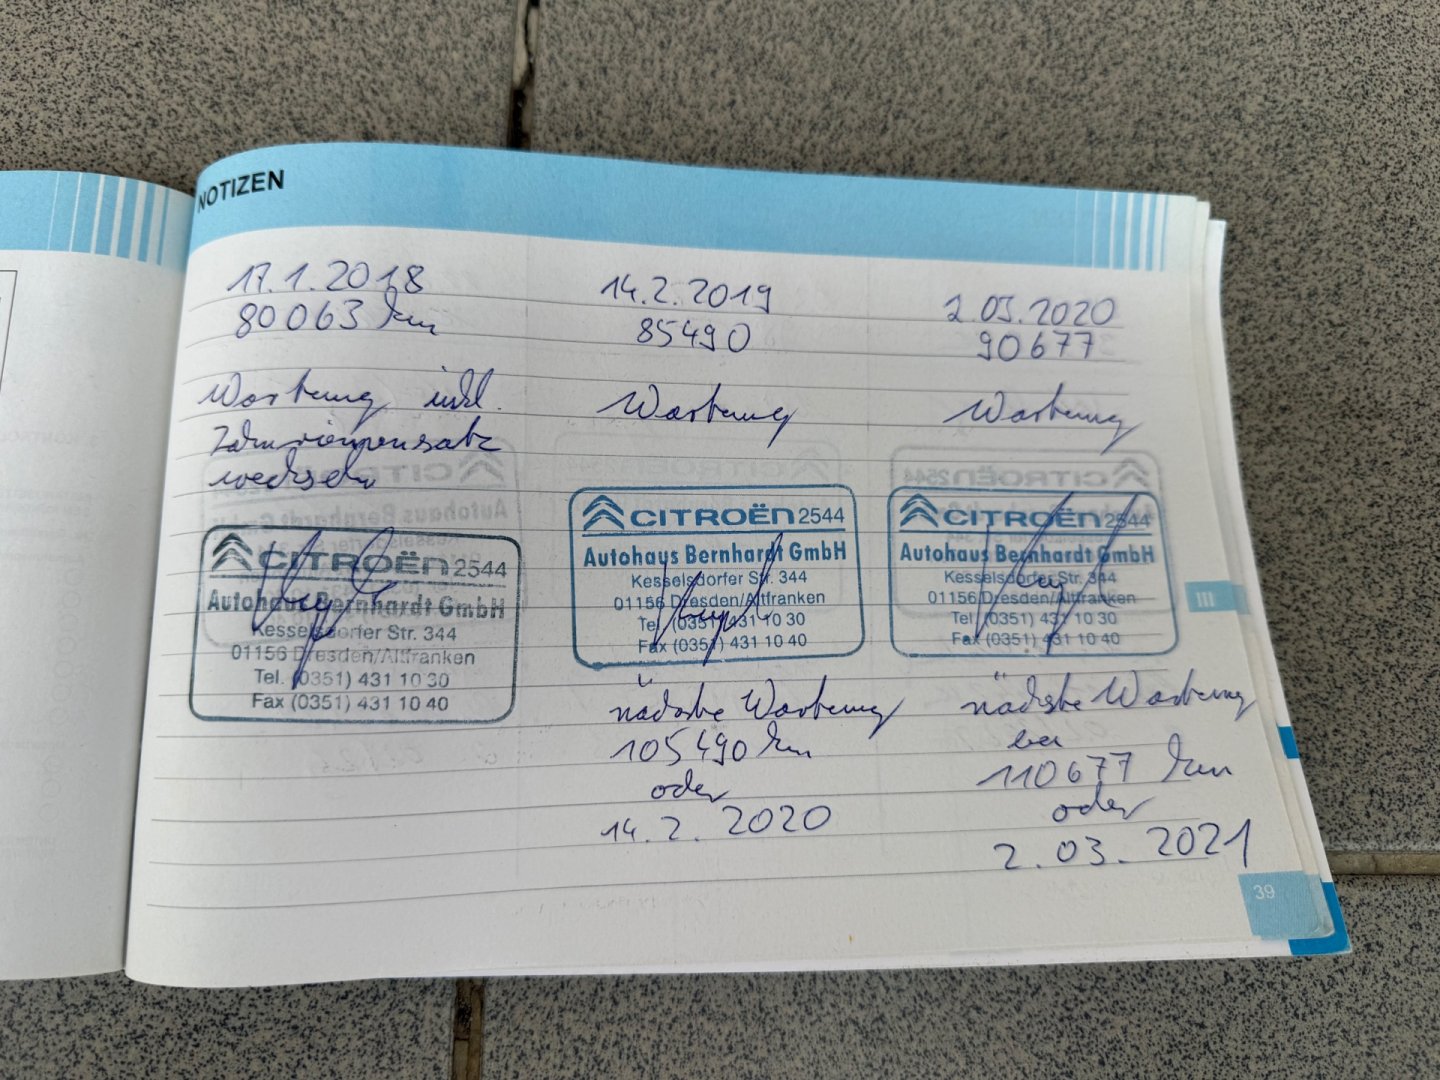 NOTIZEN
17.1.2018
80063 km
Wartung inkl.
Zahnriemensatz
wechseln
CITROËN 2544
Autohaus Bernhardt GmbH
Kesselsdorfer Str. 344
01156 Dresden/Altfranken
Tel. (0351) 431 10 30
Fax (0351) 431 10 40
14.2.2019
85490
Wartung
CITROËN 2544
Autohaus Bernhardt GmbH
Kesselsdorfer Str. 344
01156 Dresden/Altfranken
Tel. (0351) 431 10 30
Fax (0351) 431 10 40
nächste Wartung
105490 km
oder
14.2.2020
2.03.2020
90677
Wartung
CITROËN 2544
Autohaus Bernhardt GmbH
Kesselsdorfer Str. 344
01156 Dresden/Altfranken
Tel. (0351) 431 10 30
Fax (0351) 431 10 40
nächste Wartung
bei
110677 km
oder
2.03.2021
III
39